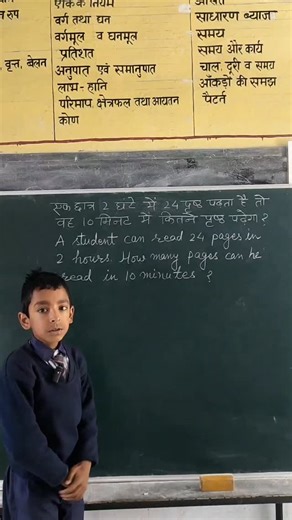 एकिक नियम
वर्ग तथा घन
वर्गमूल व घनमूल
प्रतिशत
वृत्त, बेलन
अनुपात एवं समानुपात
लाभ-हानि
परिमाप, क्षेत्रफल तथा आयतन
कोण
साधारण ब्याज
समय
समय और कार्य
चाल, दूरी व समय
आँकड़ों की समझ
पैटर्न
एक छात्र 2 घंटे में 24 पृष्ठ पढ़ता है तो
वह 10 मिनट में कितने पृष्ठ पढ़ेगा ?
A student can read 24 pages in
2 hours. How many pages can he
read in 10 minutes ?